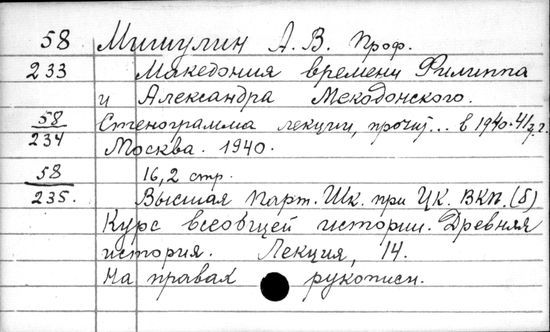 58 Мишулин А. В. Проф.
233 Македония времени Филиппа
и Александра Мекодонского.
58 Стенограмма лекции, прочит... в 1940
234 Москва. 1940.
58 16,2 стр.
235. Высшая Парт. Шк. при ЦК. ВКП. (б)
Курс всеобщей истории. Древняя
история. Лекция, 14.
На правах рукописи.